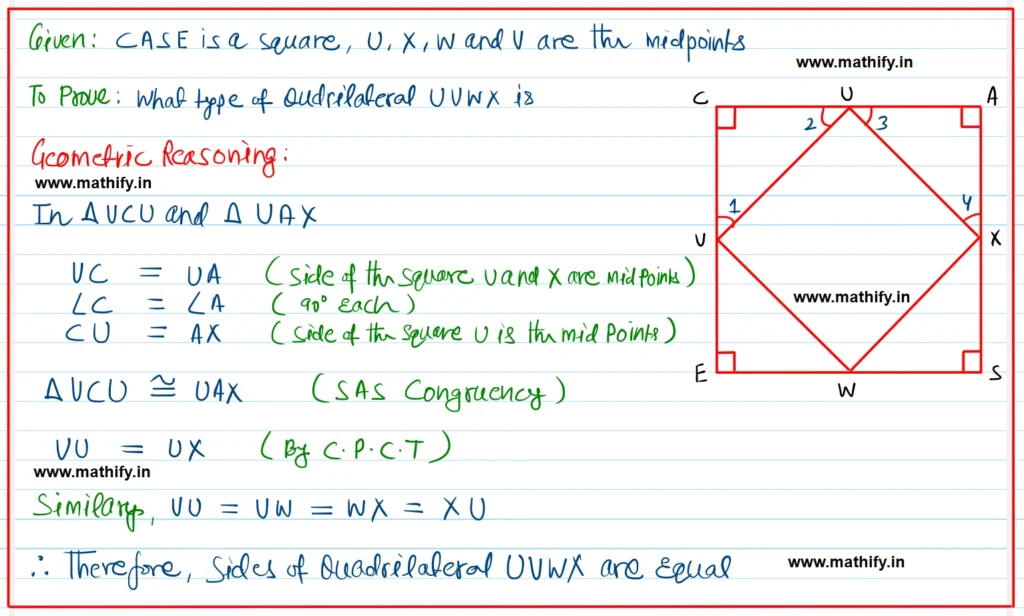 Given: CASE is a square, U, X, W and V are the midpoints
www.mathify.in
To Prove: What type of Qudrilateral UVWX is
C U A
2 3
Geometric Reasoning:
www.mathify.in
In Δ VCU and Δ UAX
1 4
V X
VC = UA (side of the square V and X are mid Points)
∠C = ∠A (90° each)
www.mathify.in
CU = AX (side of the square U is the mid Points)
E W S
Δ VCU ≅ UAX (SAS Congruency)
VU = UX (By C.P.C.T)
www.mathify.in
Similary, VU = VW = WX = XU
∴ Therefore, Sides of Quadrilateral UVWX are Equal
www.mathify.in